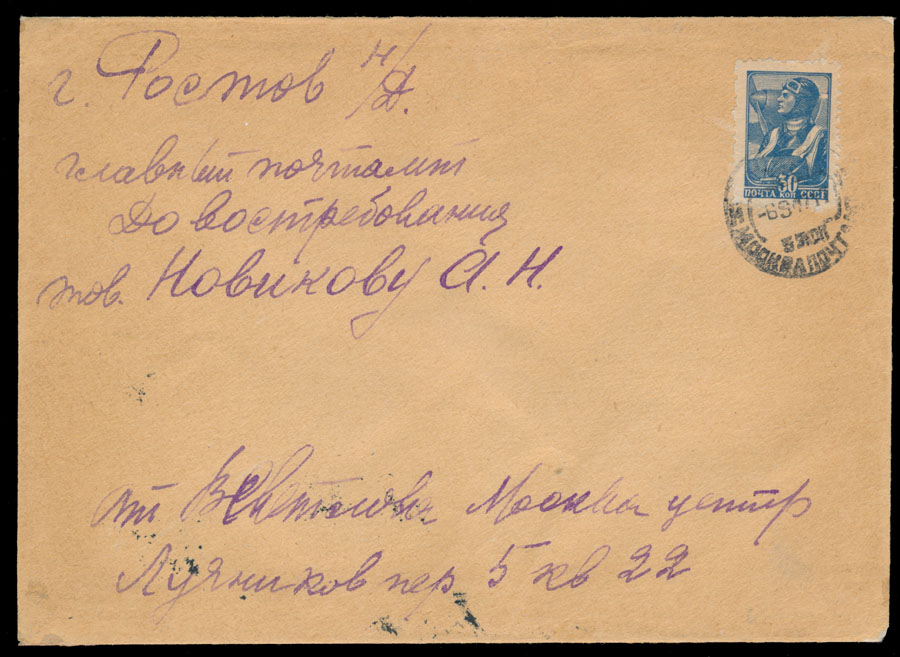 г. Ростов н/Д.
главный почтамт
До востребования
тов. Новикову А. Н.
30
ПОЧТА КОП СССР
МОСКВА ПОЧТ
от Москва центр
Лучников пер 5 кв 22